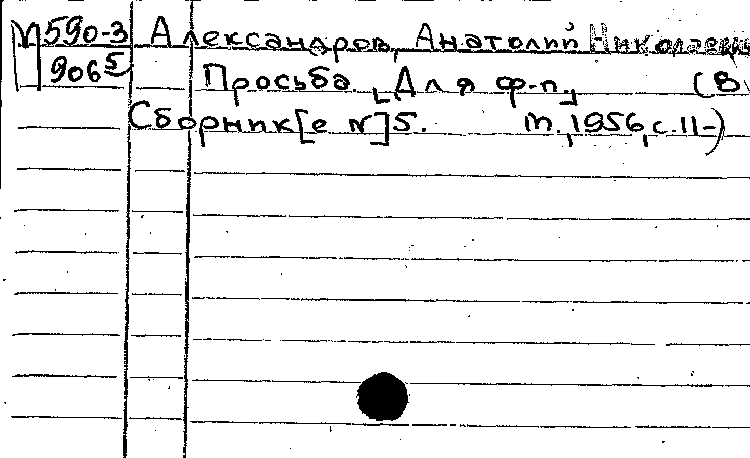 М590-3 Александров, Анатолий Николаевич
9065 Просьба [Для ф-п.] (В
Сборник[е №]5. М., 1956, с. 11-)